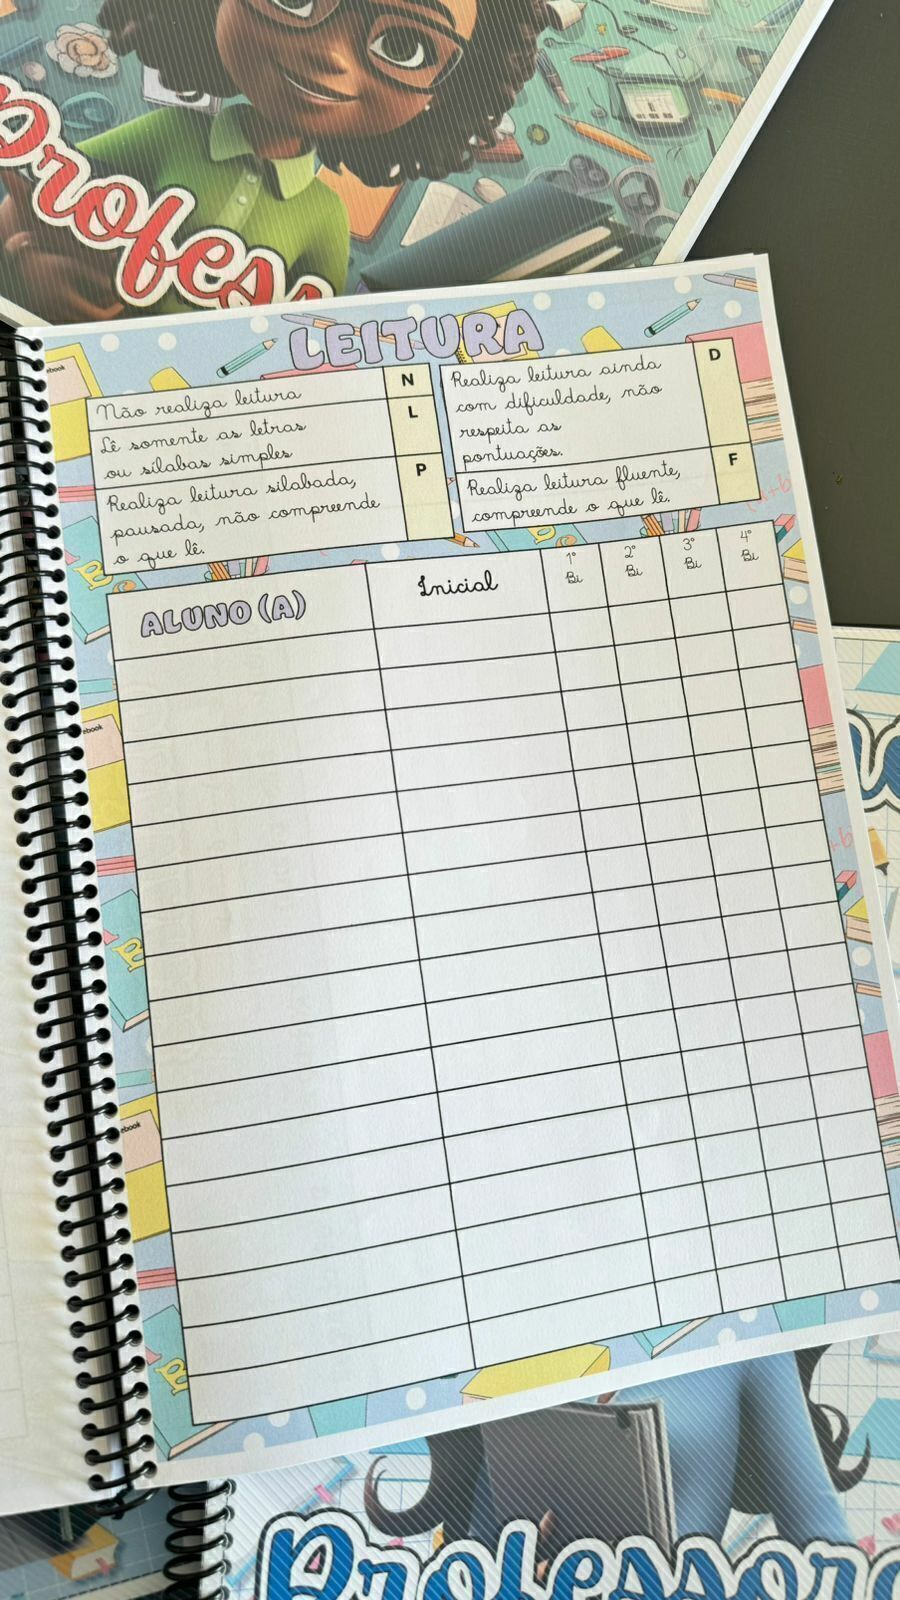 Profess
LEITURA
Não realiza leitura
N
Lê somente as letras
ou sílabas simples
L
Realiza leitura silabada,
pausada, não compreende
o que lê.
P
Realiza leitura ainda
com dificuldade, não
respeita as
pontuações.
D
Realiza leitura fluente,
compreende o que lê.
F
ALUNO(A)
Inicial
1º
Bi
2º
Bi
3º
Bi
4º
Bi
ebook
ebook
ebook
Professora